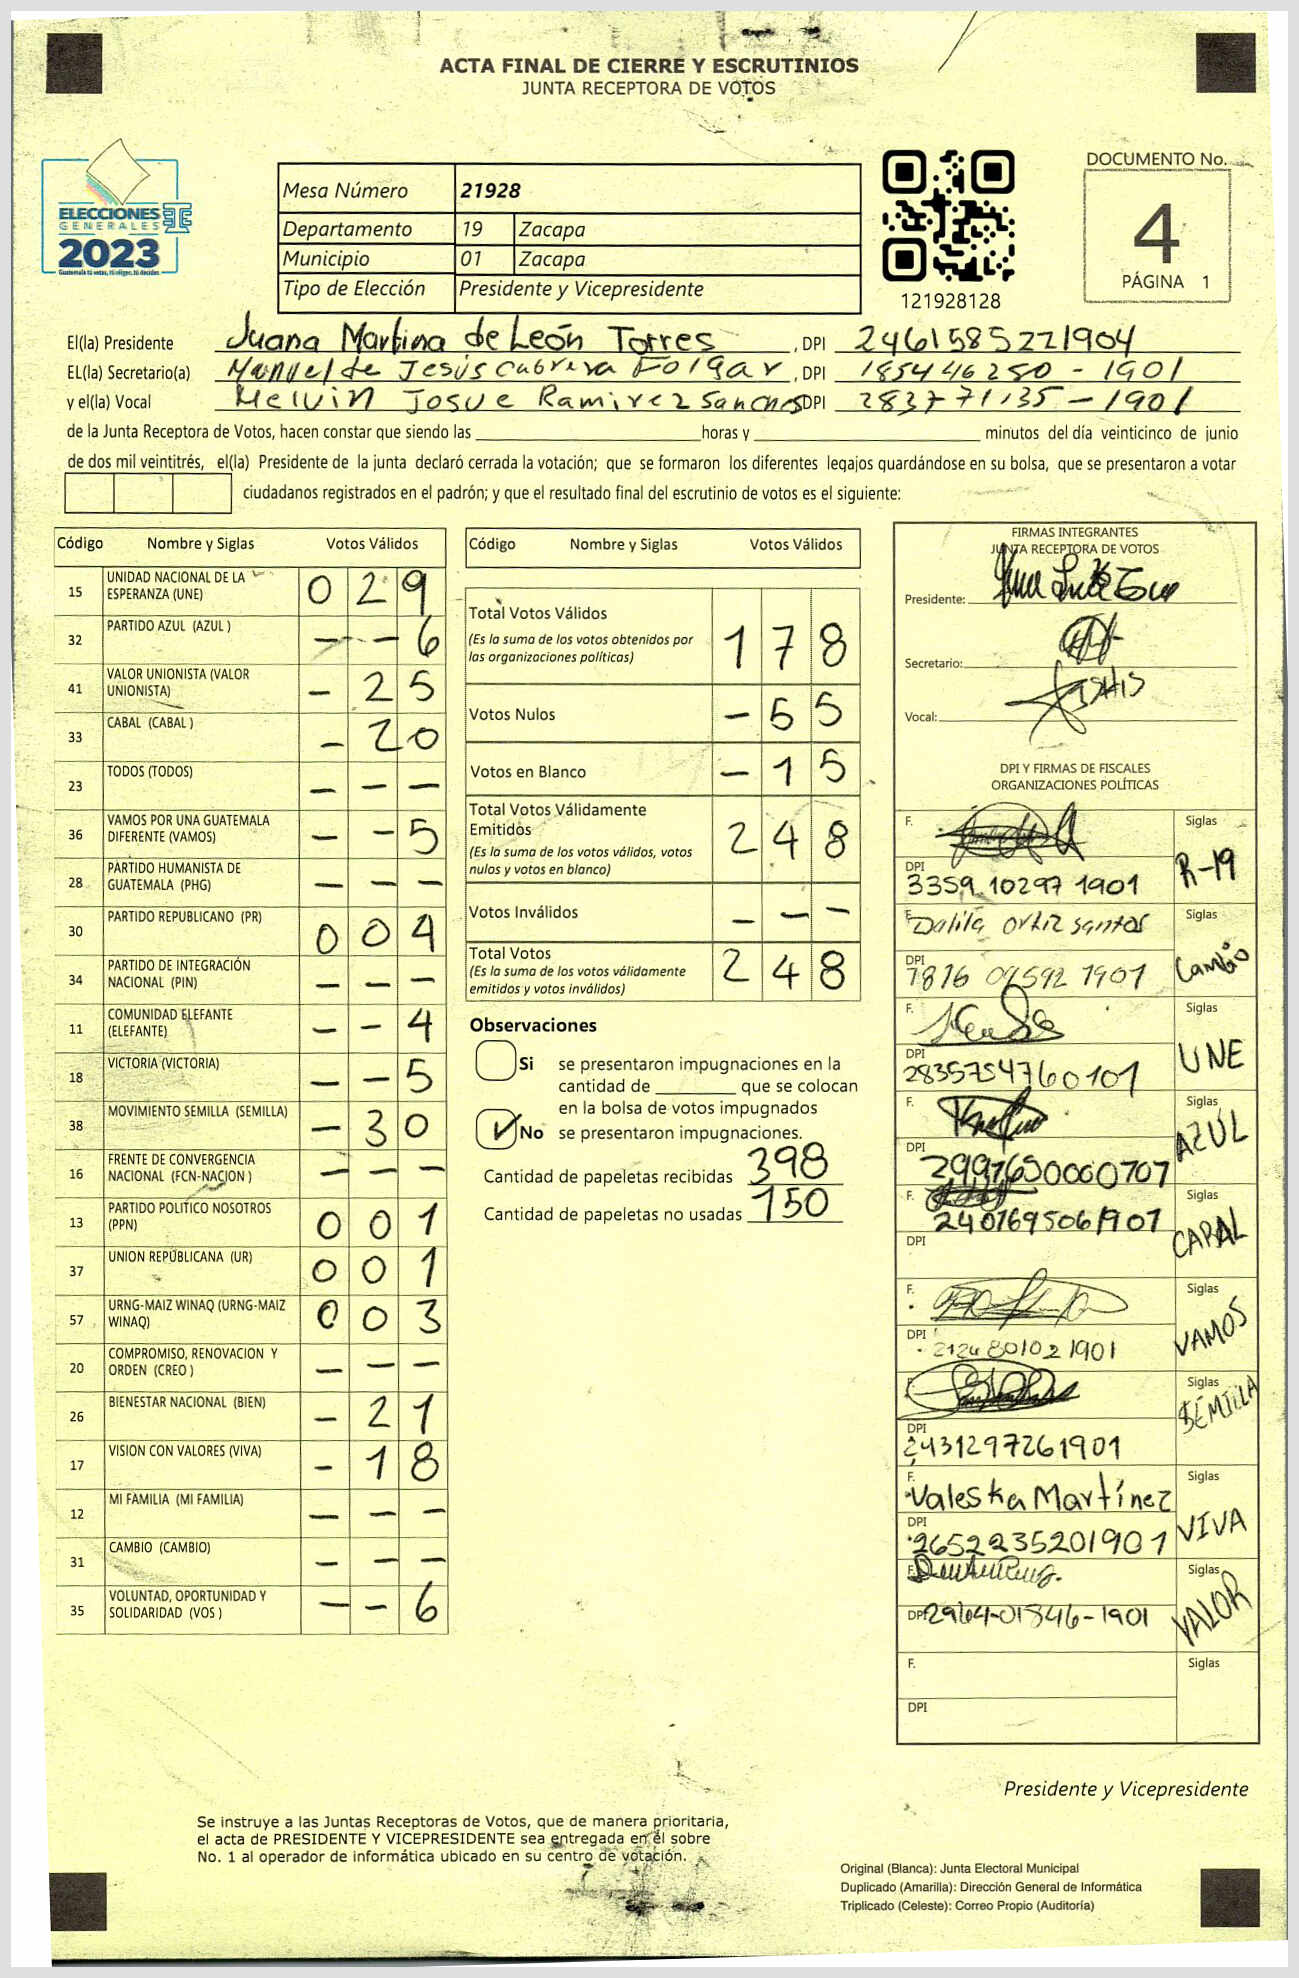 ACTA FINAL DE CIERRE Y ESCRUTINIOS
JUNTA RECEPTORA DE VOTOS
ELECCIONES
GENERALES
2023
Guatemala tú votas, tú eliges, tú decides
Mesa Número 21928
Departamento 19 Zacapa
Municipio 01 Zacapa
Tipo de Elección Presidente y Vicepresidente
121928128
DOCUMENTO No.
4
PÁGINA 1
El(la) Presidente Juana Martina de León Torres, DPI 2461585221904
EL(la) Secretario(a) Manuel de Jesús Cabrera Folgar, DPI 185446280-1901
y el(la) Vocal Melvin Josue Ramirez Sanches DPI 283771135-1901
de la Junta Receptora de Votos, hacen constar que siendo las horas y minutos del día veinticinco de junio
de dos mil veintitrés, el(la) Presidente de la junta declaró cerrada la votación; que se formaron los diferentes legajos guardándose en su bolsa, que se presentaron a votar
ciudadanos registrados en el padrón; y que el resultado final del escrutinio de votos es el siguiente:
Código Nombre y Siglas Votos Válidos
15 UNIDAD NACIONAL DE LA ESPERANZA (UNE) 0 2 9
32 PARTIDO AZUL (AZUL ) - - 6
41 VALOR UNIONISTA (VALOR UNIONISTA) - 2 5
33 CABAL (CABAL ) - 2 0
23 TODOS (TODOS) - - -
36 VAMOS POR UNA GUATEMALA DIFERENTE (VAMOS) - - 5
28 PARTIDO HUMANISTA DE GUATEMALA (PHG) - - -
30 PARTIDO REPUBLICANO (PR) 0 0 4
34 PARTIDO DE INTEGRACIÓN NACIONAL (PIN) - - -
11 COMUNIDAD ELEFANTE (ELEFANTE) - - 4
18 VICTORIA (VICTORIA) - - 5
38 MOVIMIENTO SEMILLA (SEMILLA) - 3 0
16 FRENTE DE CONVERGENCIA NACIONAL (FCN-NACION ) - - -
13 PARTIDO POLITICO NOSOTROS (PPN) 0 0 1
37 UNION REPUBLICANA (UR) 0 0 1
57 URNG-MAIZ WINAQ (URNG-MAIZ WINAQ) 0 0 3
20 COMPROMISO, RENOVACION Y ORDEN (CREO ) - - -
26 BIENESTAR NACIONAL (BIEN) - 2 1
17 VISION CON VALORES (VIVA) - 1 8
12 MI FAMILIA (MI FAMILIA) - - -
31 CAMBIO (CAMBIO) - - -
35 VOLUNTAD, OPORTUNIDAD Y SOLIDARIDAD (VOS ) - - 6
Código Nombre y Siglas Votos Válidos
Total Votos Válidos 1 7 8
(Es la suma de los votos obtenidos por
las organizaciones políticas)
Votos Nulos - 5 5
Votos en Blanco - 1 5
Total Votos Válidamente
Emitidos 2 4 8
(Es la suma de los votos válidos, votos
nulos y votos en blanco)
Votos Inválidos - - -
Total Votos 2 4 8
(Es la suma de los votos válidamente
emitidos y votos inválidos)
Observaciones
Si se presentaron impugnaciones en la
cantidad de que se colocan
en la bolsa de votos impugnados
No se presentaron impugnaciones.
Cantidad de papeletas recibidas 398
Cantidad de papeletas no usadas 150
FIRMAS INTEGRANTES
JUNTA RECEPTORA DE VOTOS
Presidente:
Secretario:
Vocal:
DPI Y FIRMAS DE FISCALES
ORGANIZACIONES POLÍTICAS
F. Siglas
DPI R-19
3359 10297 1901
F. Dalila Ortiz Santos Siglas
DPI Cambio
7816 09592 1901
F. Siglas
DPI UNE
2835754760101
F. Siglas
DPI AZUL
2997650000707
F. Siglas
2401695061901 CABAL
DPI
F. Siglas
DPI VAMOS
2124 80102 1901
F. Siglas
DPI SEMILLA
2431297261901
F. Siglas
Valeska Martínez
DPI VIVA
2652235201901
F. Siglas
DPI 2964-01846-1901 VALOR
F. Siglas
DPI
Presidente y Vicepresidente
Se instruye a las Juntas Receptoras de Votos, que de manera prioritaria,
el acta de PRESIDENTE Y VICEPRESIDENTE sea entregada en el sobre
No. 1 al operador de informática ubicado en su centro de votación.
Original (Blanca): Junta Electoral Municipal
Duplicado (Amarilla): Dirección General de Informática
Triplicado (Celeste): Correo Propio (Auditoría)